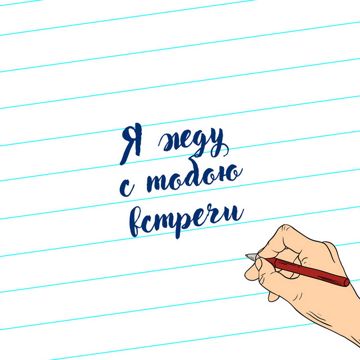 Я жду
с тобою
встречи